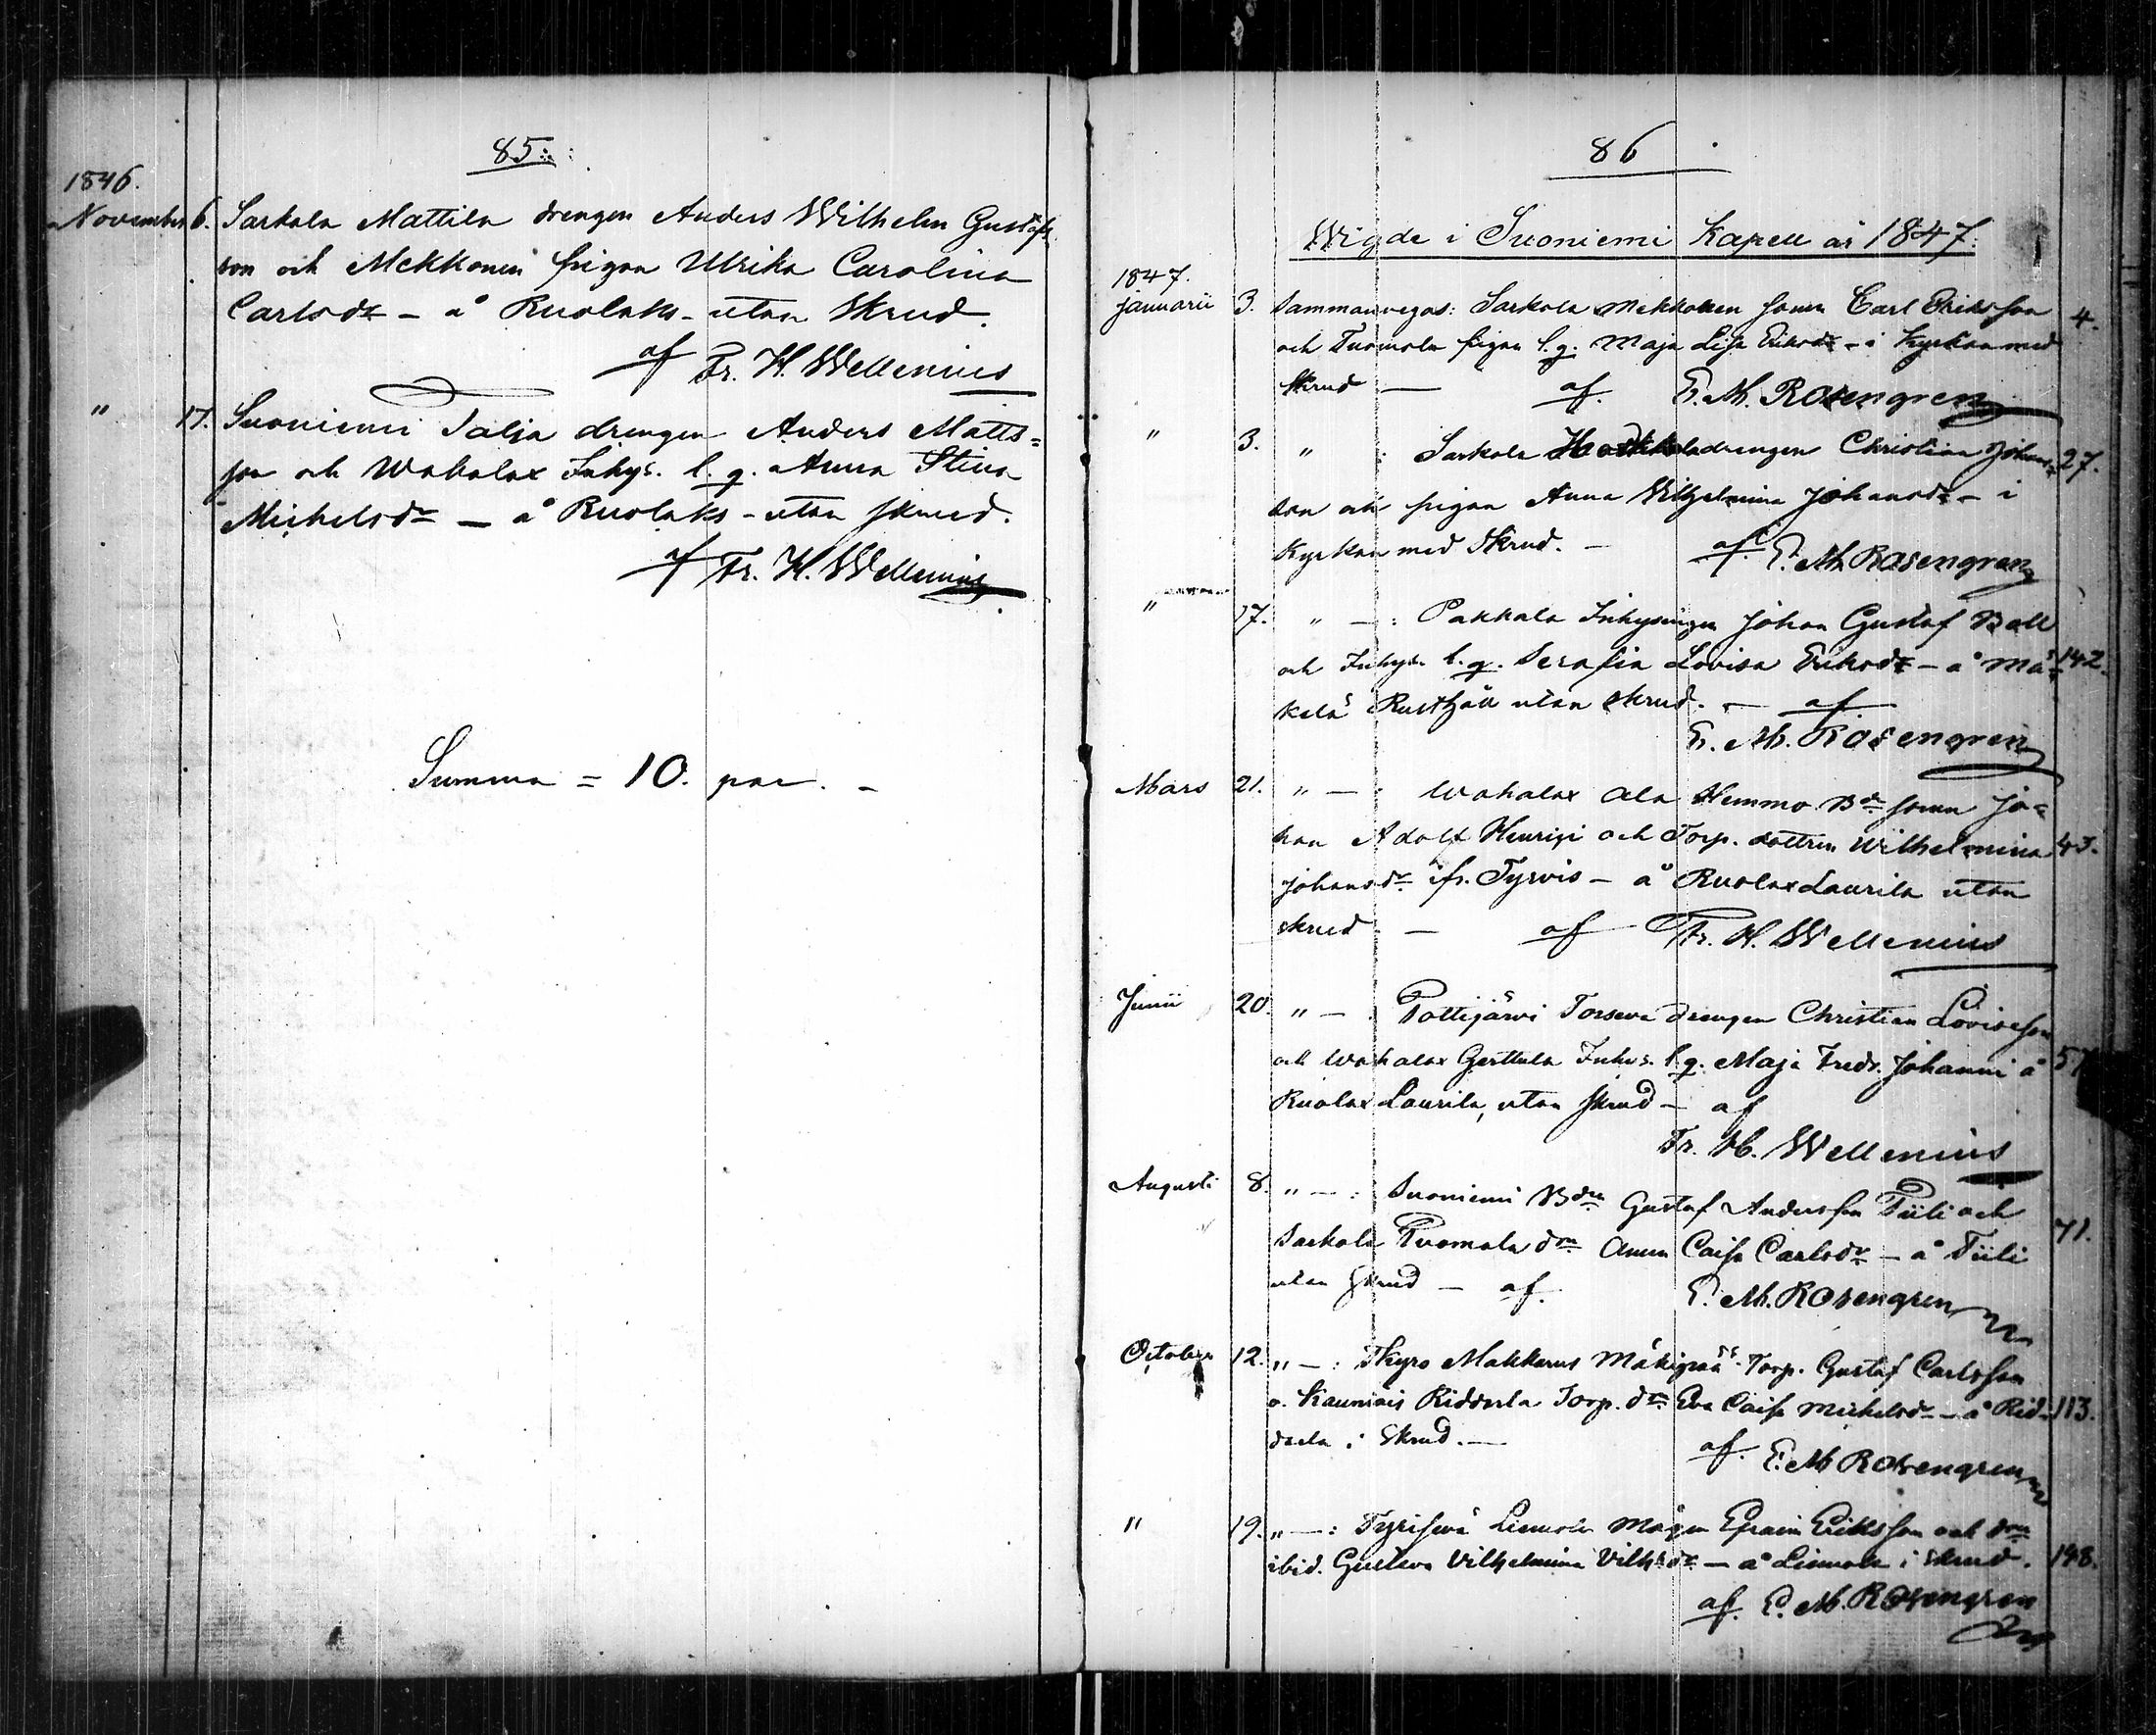 85.
1846.
November 6. Sarkola Mattila drengen Anders Wilhelm Gustafs
son och Mekkonen pigan Ulrika Carolina
Carlsdr - å Ruolaks - utan Skrud.
af Fr. H. Wellenius
" 17. Suoniemi Talja drengen Anders Matts=
son och Wahalax Inhys. l. q. Anna Stina
Michelsdr - å Ruolaks - utan skrud.
af Fr. H. Wellenius
Summa = 10. par. -
86
Wigde i Suoniemi Kapell år 1847.
1847.
Januarii 3. Sammanvegas: Sarkola Mekkonen sonen Carl Eriksson 4.
och Tuomola pigan l. q. Maja Lisa Eriksdr - i Kyrkan med
Skrud - af. E. M. Rosengren
" 3. " : Sarkola drengen Christian Johans= 27.
son och pigan Anna Vilhelmina Johansdr - i
Kyrkan med Skrud. - af. E. M. Rosengren
" 17. " - : Pakkala Inhysingen Johan Gustaf Boll
och Inhys. l. q. Serafia Lovisa Eriksdr - å Mä= 142.
kelä Rusthåll utan skrud. - af.
E. M. Rosengren
Mars 21. " - : Wahalax Ala Hemmo Bde sonen Jo=
han Adolf Henrici och Torp. dottren Wilhelmina 43.
Johansdr fr. Tyrvis - å Ruolax Laurila utan
skrud - af Fr. H. Wellenius
Junii 20. " - : Pottijärvi Torseva drengen Christian Lovisason
och Wahalax Gerttula Inhys. l. q. Maja Fredr. Johanni å 57
Ruolax Laurila, utan skrud - af
Fr. H. Wellenius
Augusti 8. " - : Suoniemi Bdn Gustaf Andersson Tiili och
Sarkola Tuomola dn Anna Caisa Carlsdr - å Tiili 71.
utan skrud - af. E. M. Rosengren
October 12. " - : Kyro Makkarus Mäkipää Torp. Gustaf Carlsson
o. Kauniais Riddarla Torp. dn Eva Caisa Michelsdr - å Rid= 113.
darla i Skrud. -
af. E. M Rosengren
" 19. " - : Liemola Mågen Efraim Eriksson och dn
ibid. Gustava Vilhelmina Vilhsdr - å Liemola i skrud. 148.
af. E. M. Rosengren